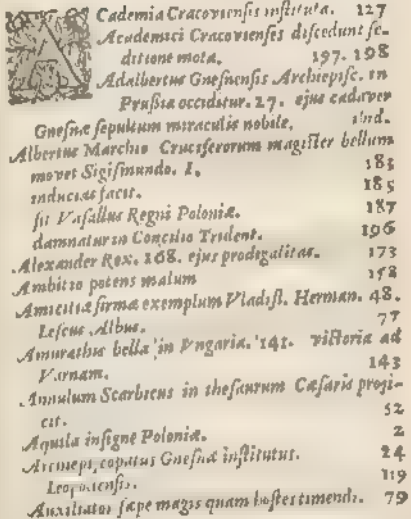 ACademia Cracoviensis instituta. 127
Academici Cracovienses discedunt se-
ditione mota. 197. 198
Adalbertus Gnesnensis Archiepisc. in
Prussia occiditur. 27. ejus cadaver
Gnesnæ sepultum miraculis nobile. ibid.
Albertus Marchio Cruciferorum magister bellum
movet Sigismundo. I. 183
inducias facit. 185
fit Vasallus Regni Poloniæ. 187
damnatur in Concilio Trident. 196
Alexander Rex. 168. ejus prodigalitas. 173
Ambitio potens malum 158
Amicitiæ firmæ exemplum Vladisl. Herman. 48.
Lescus Albus. 77
Amurathis bella in Vngaria. 141. victoria ad
Varnam. 143
Annulum Scarbicus in thesaurum Cæsaris proji-
cit. 52
Aquila insigne Poloniæ. 2
Archiepiscopatus Gnesnæ institutus. 24
Leopoliensis. 119
Auxiliator sæpe magis quam hostes timendi. 79